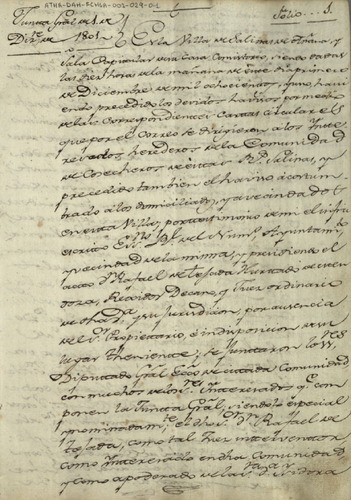 ATHA-DAH-FCHSA-002-029-01
Juntta Gral de 1.º de
Dizre. de 1801
Folio 1.
En la Villa de Salinas de Añana, y
Sala Capitular de su Casa Consistorial, siendo dadas
las diez horas de la mañana de este dia primero
de Diciembre de mil ochocientos y uno, havi
endo precedido los devidos havisos por medio
de las Correspondientes cartas circulares
que por el Correo se dirigieron a los Ynte
resados herederos de la Comunidad
de Cosecheros de estas Rs. Salinas, y
precedido tambien el haviso acostum
brado a los domiciliados, y vecindad
en esta Villa, por testimonio de mi el infra
escrito Essno. Rl. del Numo. Ayuntamto.
y vecindad de la misma, y presidiendo el
acto Dn. Rafael de Tejada Hurtado de
Regidor Decano, y Juez ordinario
de ella, y su Jurisdicion, por ausencia
del Sr. Propietario, e indisposicion de su
lugar Theniente; se Juntaron los SS.
Diputado Gral de la citada Comunidad
con muchos de los Sres. Ynteresados que com
ponen la Juntta Gral, siendo especial
y nominadamte. el dho. Sr. Dn. Rafael de
Tejada, como tal Juez interventor,
como Ynteresado en dha Comunidad
y como apoderado de la Sra. Dª. Ysidora